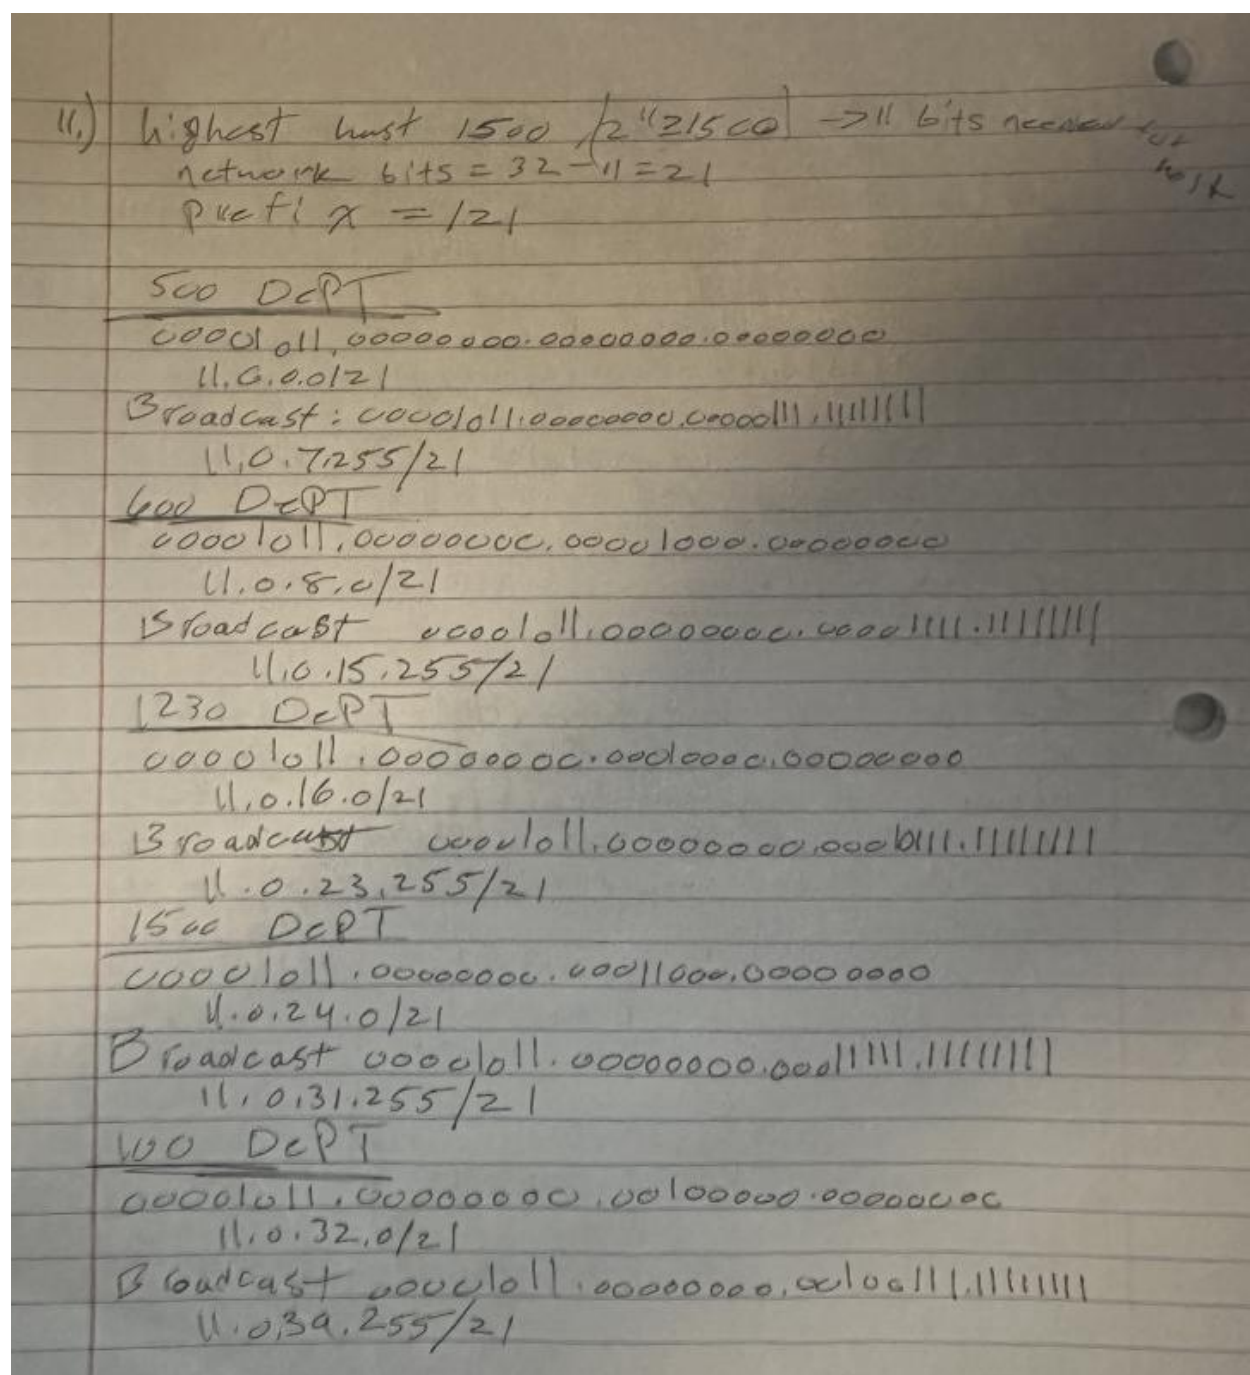 11.) highest host 1500 [2^11 ≥ 1500] -> 11 bits needed for host
network bits = 32 - 11 = 21
prefix = /21
500 DePT
00001011.00000000.00000000.00000000
11.0.0.0/21
Broadcast: 00001011.00000000.00000111.11111111
11.0.7.255/21
600 DePT
00001011.00000000.00001000.00000000
11.0.8.0/21
Broadcast 00001011.00000000.00001111.11111111
11.0.15.255/21
1230 DePT
00001011.00000000.00010000.00000000
11.0.16.0/21
Broadcast 00001011.00000000.00010111.11111111
11.0.23.255/21
1500 DePT
00001011.00000000.00011000.00000000
11.0.24.0/21
Broadcast 00001011.00000000.00011111.11111111
11.0.31.255/21
100 DePT
00001011.00000000.00100000.00000000
11.0.32.0/21
Broadcast 00001011.00000000.00100111.11111111
11.0.39.255/21